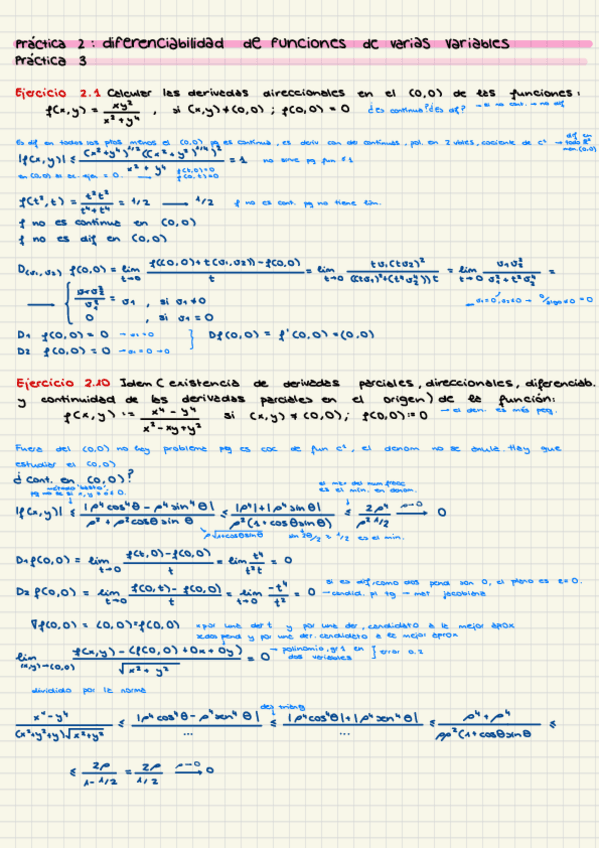 Práctica 2: diferenciabilidad de funciones de varias variables
Práctica 3
Ejercicio 2.1 Calcular las derivadas direccionales en el (0,0) de las funciones:
f(x,y) = xy²/(x²+y⁴), si (x,y)≠(0,0); f(0,0)=0 ¿es continua? ¿es dif? → si no cont. → no dif
Es dif en todos los ptos menos el (0,0) pq es continua, es deriv con de continuas, pol. en 2 vbles, cociente de c¹ → dif en todo R² - (0,0)
|f(x,y)| ≤ (x²+y⁴)^1/2 ((x²+y⁴)^1/4)²/(x²+y⁴) = 1 no sirve pq
en (0,0) = 0. → f(0,0)=0 f(0,t)=0
f(t²,t) = t²t²/(t⁴+t⁴) = 1/2 → 1/2 f no es cont. pq no tiene lim.
f no es continua en (0,0)
f no es dif en (0,0)
D(v₁,v₂) f(0,0) = lim t→0 (f((0,0)+t(v₁,v₂))-f(0,0))/t = lim t→0 tv₁(tv₂)²/(((tv₁)²+(t⁴v₂⁴))t) = lim t→0 v₁v₂²/(v₁²+t²v₂⁴) =
→ { v₁v₂²/v₁² = v₁, si v₁≠0
0, si v₁=0
D₁ f(0,0) = 0 → v₁=0 } Df(0,0) = f'(0,0) = (0,0)
D₂ f(0,0) = 0 → v₁=0 → 0
Ejercicio 2.10 Idem (existencia de derivadas parciales, direccionales, diferenciab.
y continuidad de las derivadas parciales en el origen) de la función:
f(x,y) := (x⁴-y⁴)/(x²-xy+y²) si (x,y)≠(0,0); f(0,0):=0 → el den. es más peq.
Fuera del (0,0) no hay problema pq es coc de fun c¹, el denom no se anula. Hay que
estudiar el (0,0)
¿cont. en (0,0)?
el max del num frac es el min. en denom.
|f(x,y)| ≤ |ρ⁴cos⁴θ - ρ⁴sin⁴θ|/(ρ²+ρ²cosθ sin θ) ≤ (|ρ⁴|+|ρ⁴sinθ|)/(ρ²(1+cosθsinθ)) ≤ 2ρ⁴/(ρ² 1/2) ρ→0 → 0
sin 2θ/2 = 1/2 es el min.
D₁f(0,0) = lim t→0 (f(t,0)-f(0,0))/t = lim t⁴/(t²t) = 0
D₂f(0,0) = lim t→0 (f(0,t)-f(0,0))/t = lim t→0 -t⁴/t² = 0 si es dif, como dos pend son 0, el plano es z=0.
→ candid. pl tg → mat jacobiana
∇f(0,0) = (0,0) = f(0,0) y por una der, candidato a la mejor aprox
y por una der. candidato a la mejor aprox
lim (x,y)→(0,0) (f(x,y) - (f(0,0)+0x+0y))/√(x²+y²) = 0 → polinomio, gr 1 en dos variables ] error
dividido por la norma
des triáng
(x⁴-y⁴)/((x²+y²+y)√(x²+y²)) ≤ |ρ⁴cos⁴θ - ρ⁴sen⁴θ|/... ≤ (|ρ⁴cos⁴θ|+|ρ⁴sen⁴θ|)/... ≤ (ρ⁴+ρ⁴)/(ρρ²(1+cosθsinθ) ≤
≤ 2ρ/(1-1/2) = 2ρ/(1/2) ρ→0 → 0